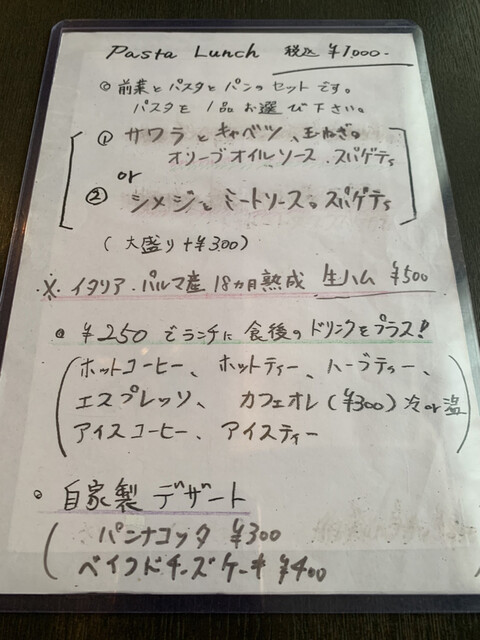 Pasta Lunch 税込 ¥1,000-
◎ 前菜とパスタとパンのセットです。
パスタを1品お選び下さい。
① サワラとキャベツ、玉ねぎの
オリーブオイルソース.スパゲティ
or
② シメジとミートソースのスパゲティ
(大盛り+¥300)
※イタリア.パルマ産18ヵ月熟成 生ハム ¥500
◎ ¥250でランチに食後のドリンクをプラス!
ホットコーヒー、ホットティー、ハーブティー、
エスプレッソ、カフェオレ(¥300)冷or温
アイスコーヒー、アイスティー
◦ 自家製デザート
パンナコッタ ¥300
ベイクドチーズケーキ ¥400